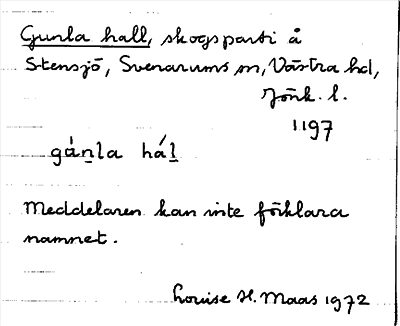 Gunla hall, skogsparti å
Stensjö, Svenarums sn, Västra hd,
Jönk. l.
1197
gá̀n̲la hál̲
Meddelaren kan inte förklara
namnet.
Louise H. Maas 1972